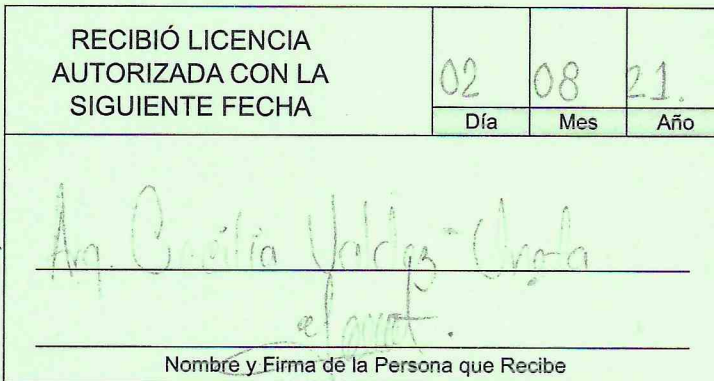 RECIBIÓ LICENCIA
AUTORIZADA CON LA
SIGUIENTE FECHA
02 08 21.
Día Mes Año
Arq. Cecilia Valdez
Nombre y Firma de la Persona que Recibe